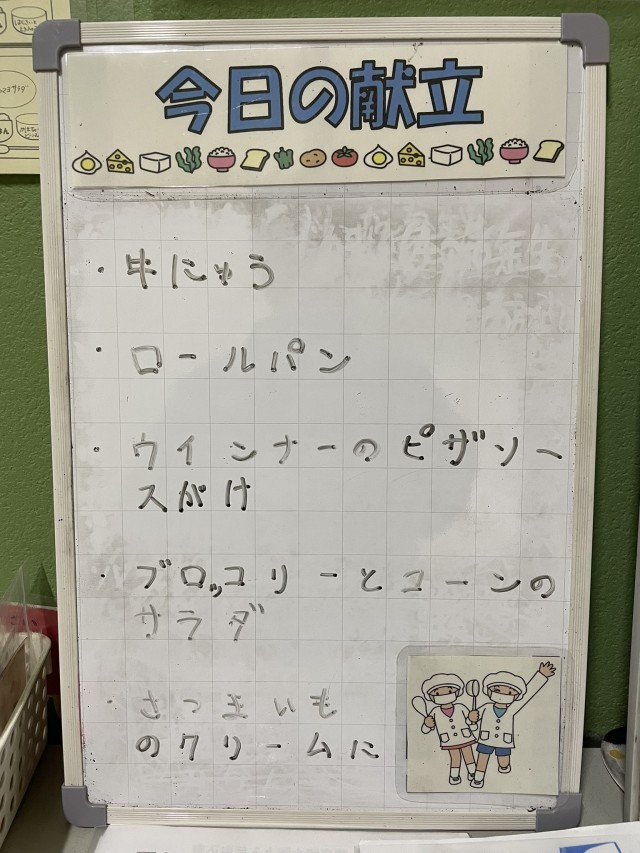 今日の献立
・牛にゅう
・ロールパン
・ウインナーのピザソー
スがけ
・ブロッコリーとコーンの
サラダ
・さつまいも
のクリームに